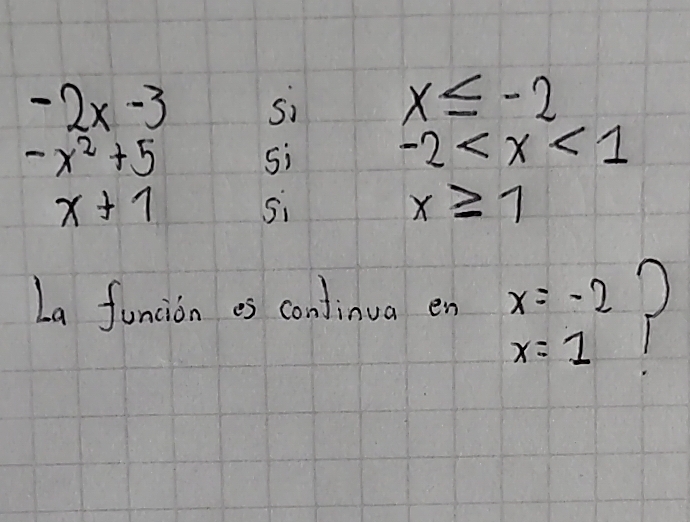 -2x -3 si x ≤ -2
-x² +5 si -2 < x < 1
x + 1 si x ≥ 1
La función es continua en x = -2 ?
x = 1